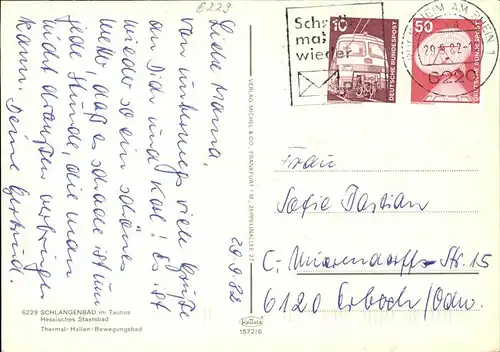 6229
Liebe Mama,
von unterwegs viele Grüße
an Dich und Karl! Es ist
wieder so ein schönes
Wetter, daß es schade ist um
jede Stunde, die man
nicht draußen verbringen
kann. Deine Gertrud.
29.9.82
6229 SCHLANGENBAD im Taunus
Hessisches Staatsbad
Thermal-Hallen-Bewegungsbad
VERLAG MICHEL & CO · FRANKFURT / M.
1572/6
Schreib
mal
wieder
10
DEUTSCHE BUNDESPOST
50
DEUTSCHE BUNDESPOST
AM RHEIN
29.9.82
6220
Frau
Sofie Bastian
C.-Mierendorff-Str. 15
6120 Erbach/Odw.